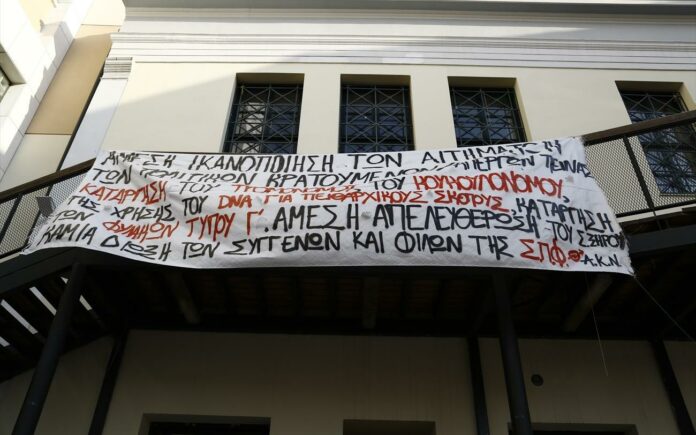 ΑΜΕΣΗ ΙΚΑΝΟΠΟΙΗΣΗ ΤΩΝ ΑΙΤΗΜΑΤΩΝ
ΤΩΝ ΠΟΛΙΤΙΚΩΝ ΚΡΑΤΟΥΜΕΝΩΝ ΑΠΕΡΓΩΝ ΠΕΙΝΑΣ
ΚΑΤΑΡΓΗΣΗ ΤΟΥ ΤΡΟΜΟΝΟΜΟΥ, ΤΟΥ ΚΟΥΚΟΥΛΟΝΟΜΟΥ,
ΤΗΣ ΧΡΗΣΗΣ ΤΟΥ DNA ΓΙΑ ΠΕΙΘΑΡΧΙΚΟΥΣ ΣΚΟΠΟΥΣ, ΚΑΤΑΡΓΗΣΗ
ΤΩΝ ΦΥΛΑΚΩΝ ΤΥΠΟΥ Γ΄. ΑΜΕΣΗ ΑΠΕΛΕΥΘΕΡΩΣΗ ΤΟΥ Σ. ΞΗΡΟΥ
ΚΑΜΙΑ ΔΙΩΞΗ ΤΩΝ ΣΥΓΓΕΝΩΝ ΚΑΙ ΦΙΛΩΝ ΤΗΣ ΣΠΦ. Α.Κ.Ν